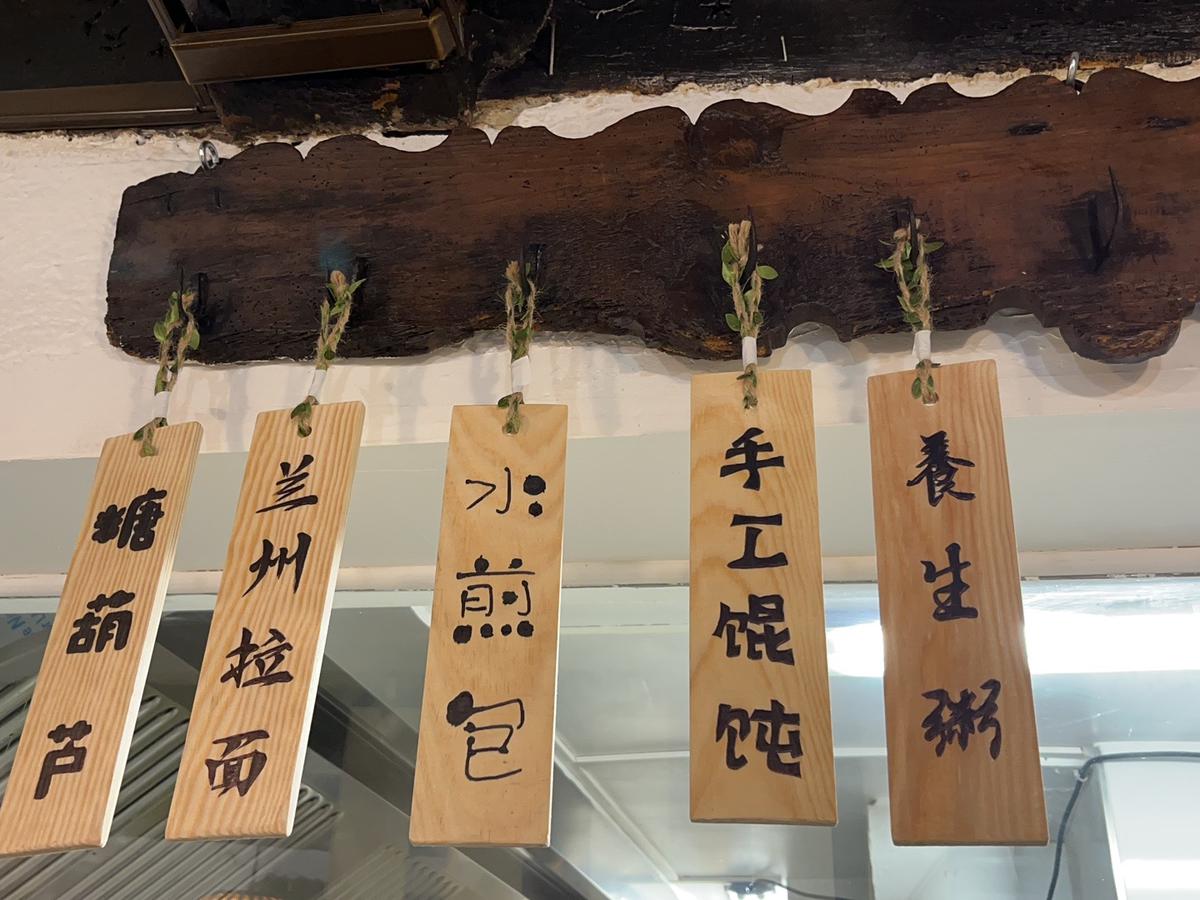 糖葫芦
兰州拉面
水煎包
手工馄饨
養生粥